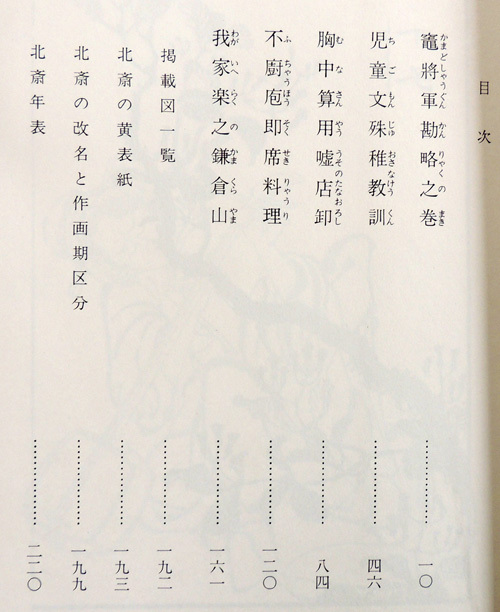 目次
竈將軍勘略之巻 一〇
児童文殊稚教訓 四六
胸中算用嘘店卸 八四
不厨庖即席料理 一二〇
我家楽之鎌倉山 一六一
掲載図一覧 一九二
北斎の黄表紙 一九三
北斎の改名と作画期区分 一九九
北斎年表 二二〇